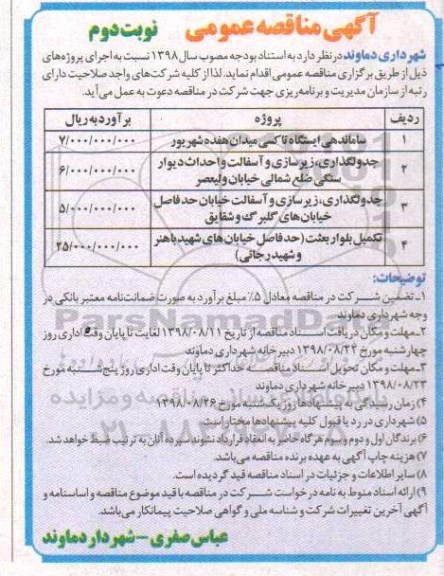 آگهی مناقصه عمومی نوبت دوم
شهرداری دماوند در نظر دارد به استناد بودجه مصوب سال ۱۳۹۸ نسبت به اجرای پروژه‌های
ذیل از طریق برگزاری مناقصه عمومی اقدام نماید. لذا از کلیه شرکت‌های واجد صلاحیت دارای
رتبه از سازمان مدیریت و برنامه‌ریزی جهت شرکت در مناقصه دعوت به عمل می‌آید.
ردیف پروژه برآورد به ریال
۱ ساماندهی ایستگاه تاکسی میدان هفده شهریور ۷/۰۰۰/۰۰۰/۰۰۰
۲ جدولگذاری، زیرسازی و آسفالت و احداث دیوار
سنگی ضلع شمالی خیابان ولیعصر ۶/۰۰۰/۰۰۰/۰۰۰
۳ جدولگذاری، زیرسازی و آسفالت خیابان حدفاصل
خیابان‌های گلبرگ و شقایق ۵/۰۰۰/۰۰۰/۰۰۰
۴ تکمیل بلوار بعثت (حدفاصل خیابان‌های شهید باهنر
و شهید رجائی) ۲۵/۰۰۰/۰۰۰/۰۰۰
توضیحات:
۱ـ تضمین شرکت در مناقصه معادل ۵٪ مبلغ برآورد به صورت ضمانت‌نامه معتبر بانکی در
وجه شهرداری دماوند
۲ـ مهلت و مکان دریافت اسناد مناقصه از تاریخ ۱۳۹۸/۰۸/۱۱ لغایت تا پایان وقت اداری روز
چهارشنبه مورخ ۱۳۹۸/۰۸/۲۲ دبیرخانه شهرداری دماوند
۳ـ مهلت و مکان تحویل اسناد مناقصه حداکثر تا پایان وقت اداری روز پنج‌شنبه مورخ
۱۳۹۸/۰۸/۲۳ دبیرخانه شهرداری دماوند
۴) زمان رسیدگی به پیشنهادها روز یکشنبه مورخ ۱۳۹۸/۰۸/۲۶
۵) شهرداری در رد یا قبول کلیه پیشنهادها مختار است
۶) برندگان اول و دوم و سوم هرگاه حاضر به انعقاد قرارداد نشوند سپرده آنان به ترتیب ضبط خواهد شد.
۷) هزینه چاپ آگهی به عهده برنده مناقصه می‌باشد.
۸) سایر اطلاعات و جزئیات در اسناد مناقصه قید گردیده است.
۹) ارائه اسناد منوط به نامه درخواست شرکت در مناقصه با قید موضوع مناقصه و اساسنامه و
آگهی آخرین تغییرات شرکت و شناسه ملی و گواهی صلاحیت پیمانکار می‌باشد.
عباس صفری - شهردار دماوند
ParsNamadData